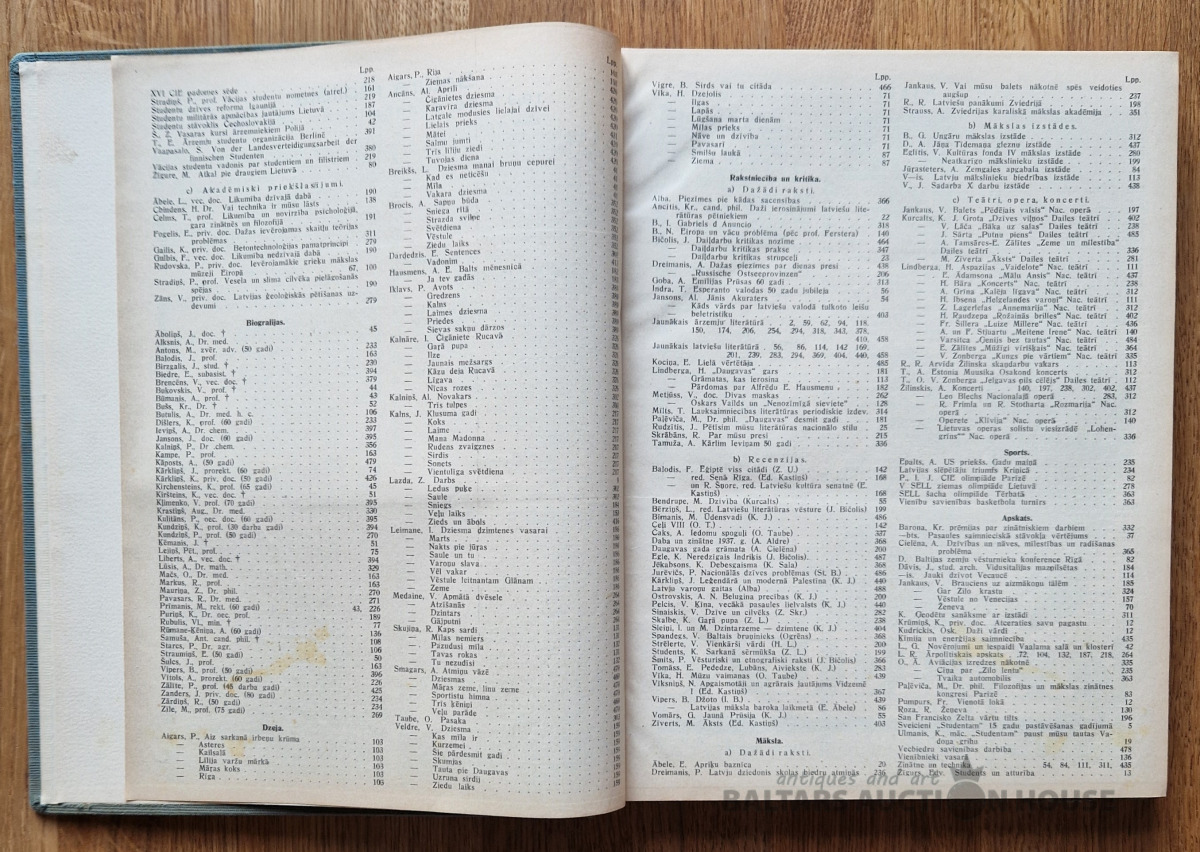 Lpp.
XVI CIE padomes sēde 218
Stradiņš, P., prof. Vācijas studentu nometnes (atref.) 161
Studentu dzīves reforma Igaunijā 219
Studentu militārās apmācības jautājums Lietuvā 187
Studentu stāvoklis Čechoslovakijā 104
Š., Z. Vasaras kursi ārzemniekiem Polijā 42
T., E. Ārzemju studentu organizācija Berlinē 391
Vaapasalo, S. Von der Landesverteidigungsarbeit der
finnischen Studenten 380
Vācijas studentu vadonis par studentiem un filistriem 219
Žigure, M. Atkal pie draugiem Lietuvā 80
c) Akadēmiski priekšlasījumi.
Ābele, L., vec. doc. Likumība dzīvajā dabā 190
Cbindens, H. Dr. Vai technika ir mūsu lāsts 138
Celms, T., prof. Likumība un novirzība psicholoģijā,
gara zinātnēs un filozofijā 191
Fogelis, E., priv. doc. Dažas ievērojamas skaitļu teōrijas
problēmas 311
Gailis, K., priv. doc. Betontechnoloģijas pamatprincipi 279
Gulbis, F., vec. doc. Likumība nedzīvajā dabā 190
Rudovska, P., priv. doc. Ievērojamākie grieķu mākslas
mūzeji Eiropā 67, 100
Stradiņš, P., prof. Vesela un slima cilvēka pielāgošanās
spējas 190
Zāns, V., priv. doc. Latvijas ģeoloģiskās pētīšanas uz-
devumi 279
Biografijas.
Āboliņš, J., doc. † 45
Alksnis, A., Dr. med.
Antons, M., zvēr. adv. (50 gadi) 233
Balodis, J., prof. 163
Birzgalis, J., stud. † 230
Biedre, E., subasist. † 394
Brencēns, V., vec. doc. † 379
Bukovskis, V., prof. † 44
Būmanis, A., prof. † 43
Bušs, Kr., Dr. † 52
Butulis, A., Dr. med. h. c. 106
Dišlers, K., prof. (60 gadi) 233
Ieviņš, A., Dr. chem. 397
Jansons, J., doc. (60 gadi) 395
Kalniņš, P., Dr. chem. 356
Kampe, P., prof. 163
Kāposts, A., (50 gadi) 479
Kārkliņš, J., prorekt. (60 gadi) 74
Kārkliņš, K., priv. doc. (50 gadi) 426
Kirchenšteins, K., prof. (65 gadi) 45
Kiršteins, K., vec. doc. † 51
Kļimenko, V., prof. (70 gadi) 395
Krastiņš, Aug., Dr. med. 330
Kulitāns, P., vec. doc. (60 gadi) 395
Kundziņš, K., prof. (30 darba gadi) 394
Kundziņš, P., prof. (50 gadi) 270
Ķēmanis, J. † 51
Leijiņš, Pēt., prof. 75
Liberts, A., vec. doc. † 394
Lūsis, A., Dr. math. 329
Mačs, O., Dr. med. 163
Markus, R., prof. 163
Mauriņa, Z., Dr. phil. 270
Pavasars, R., Dr. med. 271
Prīmanis, M., rekt. (60 gadi) 43, 226
Puriņš, K., Dr. oec., prof. 189
Rubulis, Vl., min. † 77
Rūmane-Ķēniņa, A. (60 gadi) 136
Samuša, Ant. cand. phil. † 108
Starcs, P., Dr. agr. 106
Straumiņš, E. (50 gadi) 50
Šulcs, J., prof. 163
Vipers, B., prof. (50 gadi) 396
Vītols, A., prorekt. (60 gadi) 226
Zālīte, P., prof. (45 darba gadi) 425
Zanders, J., priv. doc. (80 gadi) 234
Zārdiņš, R., (50 gadi) 234
Zīle, M., prof. (75 gadi) 269
Dzeja.
Aigars, P., Aiz sarkanā irbeņu krūma 103
— Asteres 103
— Kailsalā 103
— Lilija varžu mārkā 103
— Māras koks 103
— Rīga 106
Lpp.
Aigars, P., Rija
— Ziemas nākšana
Ancāns, Al. Aprīlī
— Čigānietes dziesma
— Karavīra dziesma
— Latgale modusies lielajai dzīvei
— Lielais prieks
— Mātei
— Salmu jumti
— Trīs liliju ziedi
— Tuvojas diena
Breikšs, L. Dziesma manai bruņu cepurei
— Kad es neticēšu
— Mīla
— Vakara dziesma
Brocis, A. Sapņu būda
— Sniega rītā
— Strazda svilpe
— Svētdiena
— Vēstule
— Ziedu laiks
Dardedzis, E. Sentences
— Vadonim
Hausmens, A. E. Balts mēnesnīcā
— Ja tev gadās
Iklavs, P. Avots
— Gredzens
— Kalns
— Laimes dziesma
— Priedes
— Sievas sakņu dārzos
Kalnāre, I. Čigāniete Rucavā
— Gaŗā pupa
— Ilze
— Jaunais mežsargs
— Kāzu deja Rucavā
— Līgava
— Nīcas rozes
Kalniņš, Al. Novakars
— Trīs tulpes
Kalns, J. Klusuma gadi
— Koks
— Laime
— Mana Madonna
— Rudens zvaigznes
— Sirdis
— Sonets
— Vientuļīga svētdiena
Lazda, Z. Darbs
— Ledus puķe
— Saule
— Sniegs
— Veļu laiks
— Zieds un ābols
Leimane, I. Dziesma dzimtenes vasarai
— Marts
— Nakts pie jūras
— Saule un tu
— Varoņu slava
— Vēl vakar
— Vēstule leitnantam Glānam
— Zeme
Medaine, V. Apmātā dvēsele
— Atzīšanās
— Dzintars
— Gājputni
Skujiņa, R. Kaps sardi
— Mīlas nemiers
— Pazudusi mīla
— Tavas rokas
— Tu nezudisi
Smagars, A. Atmiņu vāzē
— Dziesmas
— Māŗas zeme, linu zeme
— Sportistu himna
— Trīs ķēniņi
— Veļu parāde
Taube, O. Pasaka
Veldre, V. Dziesma
— Kas mīla ir
— Kurzemei
— Šie pārdesmit gadi
— Skumjas
— Tauta pie Daugavas
— Uzruna sirdij
— Ziedu laiks
Lpp.
Vigre, B. Sirds vai tu citāda 466
Vīka, H. Dzejolis 71
— Ilgas 71
— Lapās 71
— Lūgšana marta dienām 71
— Mīlas prieks 71
— Nāve un dzīvība 71
— Pavasarī 71
— Smilšu laukā 87
— Ziema 87
Rakstniecība un kritika.
a) Dažādi raksti.
Alba. Piezīmes pie kādas sacensības 366
Ancītis, Kr., cand. phil. Daži ierosinājumi latviešu lite-
rātūras pētniekiem 22
B., I. Gabriels d'Anuncio 318
B., N. Eiropa un vācu problēma (pēc prof. Ferstera) 140
Bičolis, J. Daiļdarbu kritikas nozīme 464
— Daiļdarbu kritikas prakse 347
— Daiļdarbu kritikas stropceļi 23
Dreimanis, A. Dažas piezīmes par dienas presi 438
— „Russische Ostseeprovinzen" 206
Goba, A. Emilijas Prūsas 60 gadi 313
Indra, T. Esperanto valodas 50 gadu jubileja 56
Jansons, Al. Jānis Akuraters 54
— Kāds vārds par latviešu valodā tulkoto leišu
beletristiku 403
Jaunākais ārzemju literātūrā 2, 59, 62, 94, 118,
150, 174, 206, 254, 294, 318, 343, 378,
410, 458
Jaunākais latviešu literātūrā 56, 86, 114, 142, 169,
201, 239, 283, 294, 369, 404, 440, 458
Kociņa, E. Lielā vērtētāja 485
Lindberga, H. „Daugavas" gars 181
— Grāmatas, kas ierosina 113
— Pārdomas par Alfrēdu E. Hausmenu 182
Metjūss, V., doc. Divas maskas 262
— Oskars Vailds un „Nenozīmīgā sieviete" 128
Mills, T. Lauksaimniecības literātūras periodiskie izdev. 314
Paļēviča, M., Dr. phil. „Daugavas" desmit gadi 181
Rudzītis, J. Pētīsim mūsu literātūras nacionālo stilu 25
Skrābāns, R. Par mūsu presi 215
Tamuža, A. Kārlim Ieviņam 50 gadi 336
b) Recenzijas.
Balodis, F. Ēģiptē viss citādi (Z. U.) 142
— red. Senā Rīga. (Ed. Kastiņš) 168
— un R. Šnore, red. Latviešu kultūra senatnē (E.
Kastiņš) 168
Bendrupe, M. Dzīvība (Kurcalts) 55
Bērziņš, L., red. Latviešu literātūras vēsture (J. Bičolis) 199
Birmanis, M. Ūdensvadi (K. J.) 486
Ceļi VIII (O. T.) 142
Čaks, A. Iedomu spoguļi (O. Taube) 337
Daba un zinātne 1937. g. (A. Aldre) 368
Daugavas gada grāmata (A. Cielēna) 200
Egle, K. Neredzīgais Indriķis (J. Bičolis) 487
Jēkabsons, K. Debesgaisma (K. Sala) 368
Jurēvičs, P. Nacionālās dzīves problēmas (St. B.) 486
Kārkliņš, J. Leģendārā un modernā Palestina (K. J.) 440
Latvju varoņu gaitas (Alba) 488
Ostrovskis, A. N. Beļugina precības (K. J.) 200
Pelcis, V. Ķīna, vecākā pasaules lielvalsts (K. J.) 440
Sinaiskis, V. Dzīve un cilvēks (Z. Skr.) 282
Skalbe, K. Gaŗā pupa (Z. L.) 238
Sleiņi, I. un M. Dzintarzeme — dzimtene (K. J.) 404
Spandegs, V. Baltais bruņinieks (Ogrēns) 368
Strēlerte, V. Vienkārši vārdi (H. L.) 280
Students, K. Sarkanā sērmūkša (Z. L.) 199
Šmits, P. Vēsturiski un etnografiski raksti (J. Bičolis) 366
Tomāss, E. Pededze, Lubāns, Aiviekste (K. J.) 283
Vīka, H. Mūžu vaimanas (O. Taube) 439
Viksniņš, N. Apgaismotāji un agrārais jautājums Vidzemē
I (Ed. Kastiņš) 367
Vipers, B. Džoto (J. B.) 439
— Latvijas māksla baroka laikmetā (E. Ābele) 86
Vomārs, G. Jaunā Prūsija (K. J.) 55
Ziverts, M. Āksts (Ed. Kastiņš) 403
Māksla.
a) Dažādi raksti.
Ābele, E. Apriķu baznīca 20
Dreimanis, P. Latvju dziedonis skolas biedru atmiņās 236
Lpp.
Jankaus, V. Vai mūsu balets nākotnē spēs veidoties
augšup 237
R., R. Latviešu panākumi Zviedrijā 198
Strauss, A. Zviedrijas karaliskā mākslas akadēmija 351
b) Mākslas izstādes.
B., G. Ungāru mākslas izstāde 312
D., A. Jāņa Tīdemaņa gleznu izstāde 437
Eglītis, V. Kultūras fonda IV mākslas izstāde 280
— Neatkarīgo mākslinieku izstāde 199
Jūrasteters, A. Zemgales apgabala izstāde 84
V—is. Latvju mākslinieku biedrības izstāde 113
V., J. Sadarba X darbu izstāde 438
c) Teātri, opera, koncerti.
Jankaus, V. Balets „Pēdējais valsis" Nac. operā 197
Kurcalts, K. J. Grota „Dzīves viļņos" Dailes teātrī 402
— V. Lāča „Bāka uz salas" Dailes teātrī 238
— J. Sārta „Putnu piens" Dailes teātrī 485
— A. Tamsāres-E. Zālītes „Zeme un mīlestība"
Dailes teātrī 336
— M. Zīverta „Āksts" Dailes teātrī 281
Lindberga, H. Aspazijas „Vaidelote" Nac. teātrī 111
— E. Ādamsona „Mālu Ansis" Nac. teātrī 437
— H. Bāra „Koncerts" Nac. teātrī 238
— A. Grīna „Kalēja līgava" Nac. teātrī 312
— H. Ibsena „Helgelandes varoņi" Nac. teātrī 111
— Z. Lagerlefas „Annemarija" Nac. teātrī 312
— H. Raudzepa „Rožainās brilles" Nac. teātrī 402
— Fr. Šillera „Luize Millere" Nac. teātrī 436
— A. un E. Stjuartu „Meitene Irēne" Nac. teātrī 140
— Varsitca „Ģenijs bez tautas" Nac. teātrī 484
— E. Zālītes „Mūžīgi vīrišķais" Nac. teātrī 364
— V. Zonberga „Kungs pie vārtiem" Nac. teātrī 335
R., R. Arvīda Žilinska skaudarbu vakars 113
T., A. Estonia Muusika Osakond koncerts 312
T., O. V. Zonberga „Jelgavas pils cēlējs" Dailes teātrī 112
Žilinskis, A. Koncerti 140, 197, 238, 302, 402, 437
— Leo Blechs Nacionalajā operā 283, 312
— R. Frimla un R. Stotharta „Rozmarija" Nac.
operā 312
— Operete „Klivija" Nac. operā 140
— Lietuvas operas solistu viesizrādē „Lohen-
grins"" Nac. operā 336
Sports.
Epalts, A. US priekšs. Gadu mainā 235
Latvijas slēpotāju triumfs Kriņicā 234
P., I. J. CIE olimpiāde Parīzē 82
V SELL ziemas olimpiāde Lietuvā 278
SELL šacha olimpiāde Tērbatā 363
Vienību savienības basketbola turnīrs 363
Apskats.
Barona, Kr. prēmijas par zinātniskiem darbiem 332
—bts. Pasaules saimnieciskā stāvokļa vērtējums 37
Cielēna, A. Dzīvības un nāves, mīlestības un radīšanas
problēma 365
D. Baltijas zemju vēsturnieku konference Rīgā 82
Dāvis, J., stud. arch. Vidusitalijas mazpilsētas 184
—is. Jauki dzīvot Vecaucē 114
Jankaus, V. Brauciens uz aizmākoņu tālēm 185
— Gar Zilo krastu 324
— Vēstule no Venecijas 157
— Ženeva 70
K. Ģeodētu sanāksme ar izstādi 311
Krūmiņš, K., priv. doc. Atceraties savu pagastu 12
Kudrickis, Osk. Daži vārdi 12
Ķīmija un enerģijas saimniecība 435
L., G. Novērojumi un iespaidi Vaalama salā un klosterī 42
L., R. Ārpolītiskais apskats 72, 104, 132, 187, 218, 264
O., A. Aviācijas izredzes nākotnē 335
— Cīņa par „Zilo lentu" 235
— Tvaika automobilis 363
Paļēviča, M., Dr. phil. Filozofijas un mākslas zinātnes
kongresi Parīzē 83
Pumpurs, Fr. Vienotā lokā 12
Roze, R. Ženeva 130
San Francisko Zelta vārtu tilts 196
Sveicieni „Studentam" 15 gadu pastāvēšanas gadījumā 5
Ulmanis, K., māc. „Studentam" paust mūsu tautas Va-
doņa gribu 19
Vecbiedru savienības darbība 478
Vienībnieki vasarā 136
Zinātne un technika 54, 84, 111, 311, 435
Žīgurs, Edv. Students un atturība 13
antiques and art
BALTARS AUCTION HOUSE